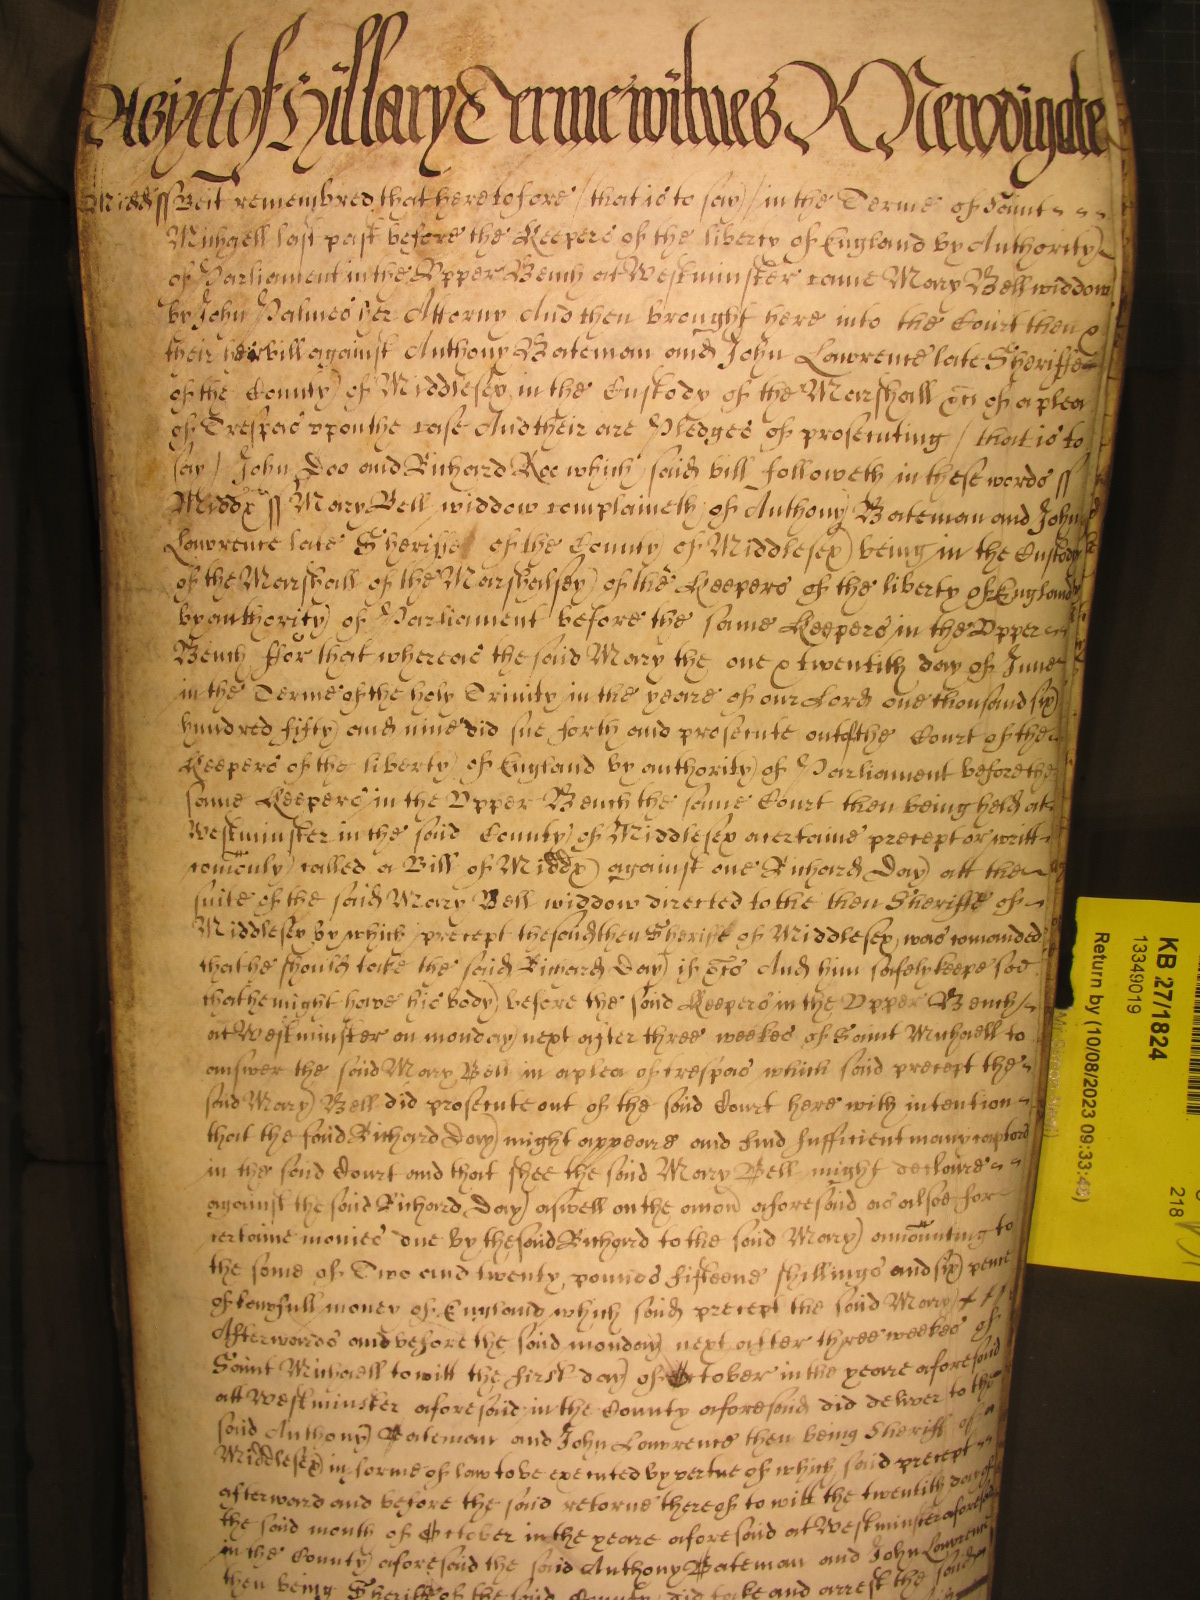 As yet of Hillary Terme witnes R Newdigate
Midds ss Beit remembred that heretofore / that is to say / in the Terme of Saint
Michaell last past before the Keepers of the liberty of England by Authority
of Parliament in the Upper Bench at Westminster came Mary Bell widdow
by John Palmes her Attorny And then brought here into the Court then &
their her bill against Anthony Bateman and John Lawrence late Sheriffe
of the County of Middlesex in the Custody of the Marshall &c of a plea
of Trespas upon the case And their are Pledges of prosecuting / that is to
say / John Doo and Richard Roo which said bill followeth in these words ss
Middx ss Mary Bell widdow complaineth of Anthony Bateman and John
Lawrence late Sheriffe of the County of Middlesex being in the Custody
of the Marshall of the Marshalsey of the Keepers of the liberty of England
by authority of Parliament before the same Keepers in the Upper
Bench ffor that whereas the said Mary the one & twentith day of June
in the Terme of the holy Trinity in the yeare of our Lord one thousand six
hundred fifty and nine did sue forth and prosecute out of the Court of the
Keepers of the liberty of England by authority of Parliament before the
same Keepers in the Upper Bench the same Court then being held at
Westminster in the said County of Middlesex a certaine precept or writt
comonly called a Bill of Middx against one Richard Day att the
suite of the said Mary Bell widdow directed to the then Sheriffe of
Middlesex by which precept the said then Sheriff of Middlesex was comanded
that he should take the said Richard Day if &c And him safely keepe soe
that he might have his body before the said Keepers in the Upper Bench
at Westminster on monday next after three weekes of Saint Michaell to
answer the said Mary Bell in a plea of trespas which said precept the
said Mary Bell did prosecute out of the said Court here with intention
that the said Richard Day might appeare and find sufficient manycaptors
in the said Court and that shee the said Mary Bell might declare
against the said Richard Day aswell on the aforesaid as alsoe for
certaine monies due by the said Richard to the said Mary amounting to
the some of Two and twenty pounds fifteene shillings and six pence
of lawfull money of England which said precept the said Mary
Afterwards and before the said monday next after three weekes of
Saint Michaell to witt the first day of October in the yeare aforesaid
att Westminster aforesaid in the County aforesaid did deliver to the
said Anthony Bateman and John Lawrence then being Sheriff of
Middlesex in forme of law to be executed by vertue of which said precept
afterward and before the said returne thereof to witt the twentith day of
the said month of October in the yeare aforesaid at Westminster aforesaid
in the County aforesaid the said Anthony Bateman and John Lawrence
then being Sheriffe of the said County did take and arrest the said
KB 27/1824
13349019
Return by (10/08/2023 09:33:48)
218